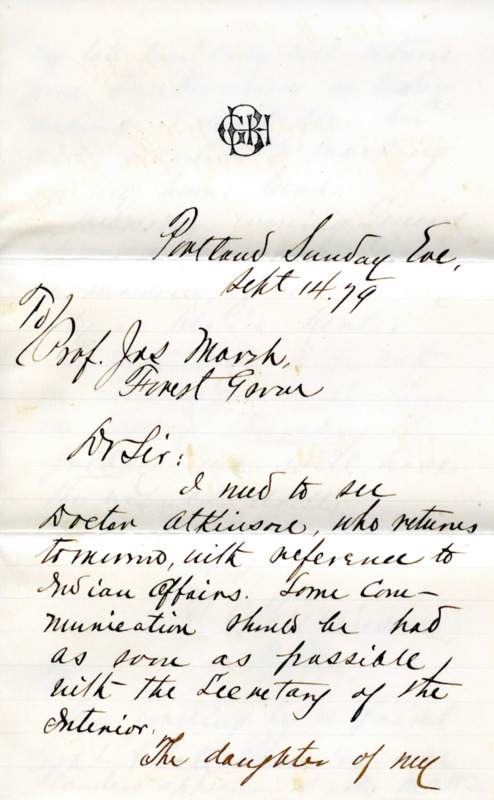 Portland Sunday Eve,
Sept 14.79
To
Prof. Jas Marsh,
Forest Grove
Dr Sir:
I need to see
Doctor Atkinson, who returns
tomorrow, with reference to
Indian Affairs. Some Com-
munication should be had
as soon as possible,
with the Secretary of the
Interior.
The daughter of my